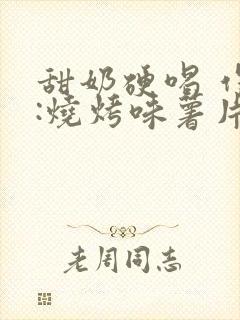 甜奶硬唱
:燒烤味薯片
老周同志